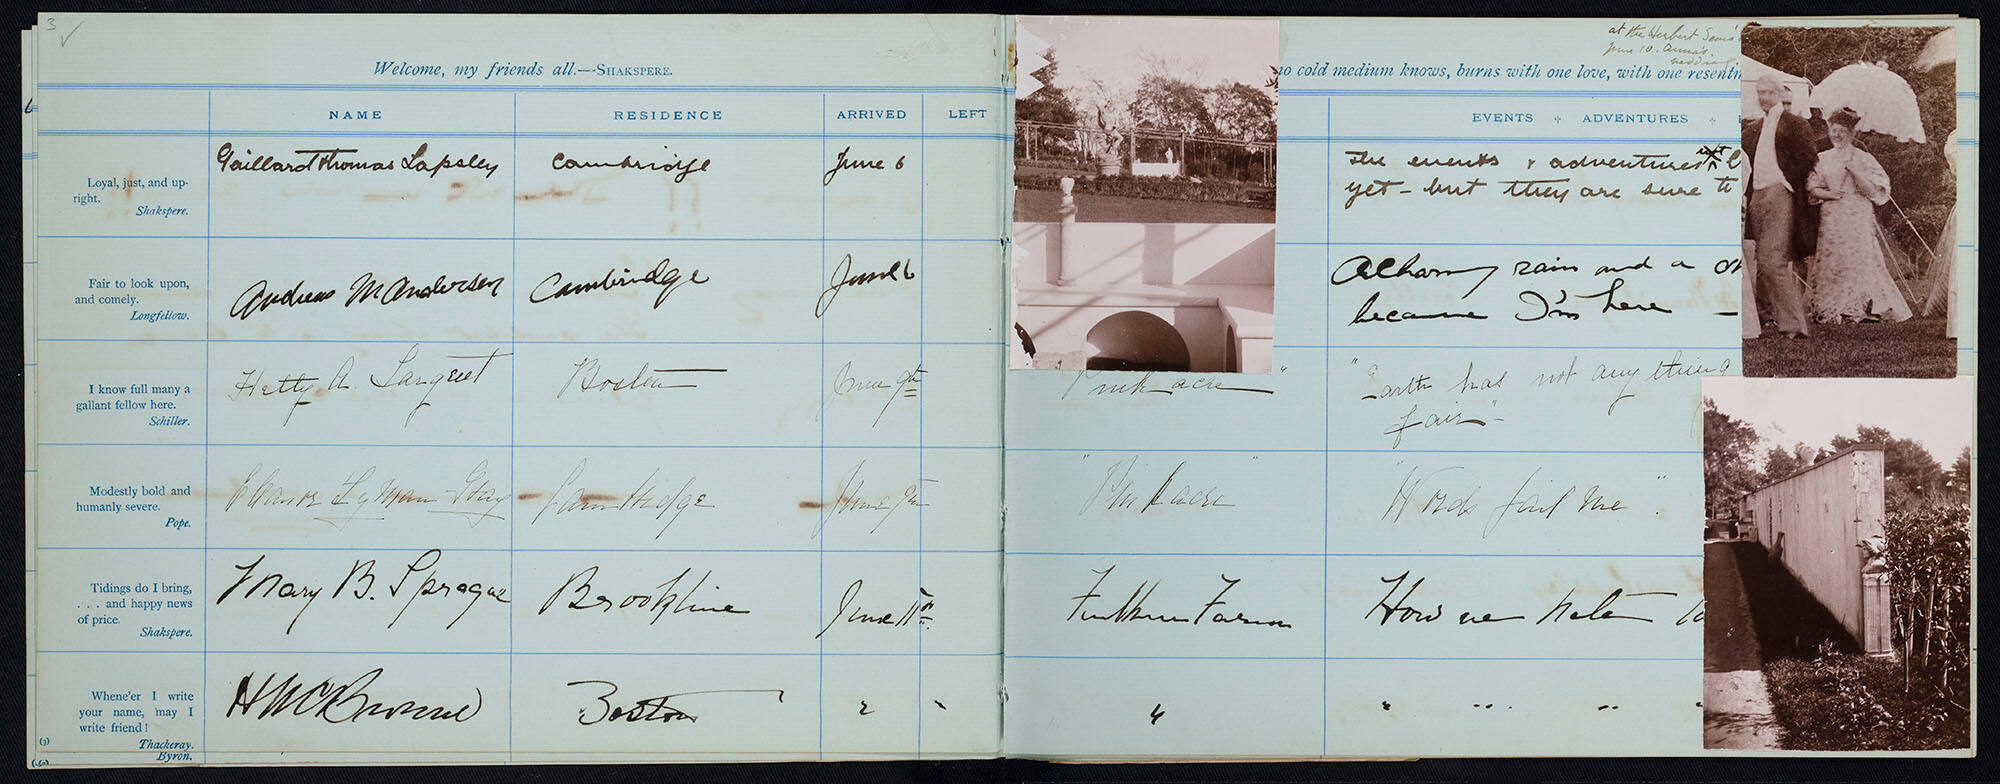 3 ✓
Welcome, my friends all.—SHAKSPERE.
NAME
RESIDENCE
ARRIVED
LEFT
Loyal, just, and up-
right.
Shakspere.
Gaillard Thomas Lapsley
Cambridge
June 6
Fair to look upon,
and comely.
Longfellow.
Andreas M Andersen
Cambridge
June 6
I know full many a
gallant fellow here.
Schiller.
Hetty A. Sargent
Boston
June 9th
Modestly bold and
humanly severe.
Pope.
Eleanor Lyman Gray
Cambridge
June 9th
Tidings do I bring,
. . . and happy news
of price.
Shakspere.
Mary B. Sprague
Brookline
June 11th
Whene'er I write
your name, may I
write friend!
Thackeray.
Byron.
Boston
"
(3)
at the Herbert
June 10. Anna's
wedding
no cold medium knows, burns with one love, with one resentm
EVENTS ÷ ADVENTURES ÷
The events & adventures
yet - but they are sure to
rain and a
because I'm here —
acre"
"Earth has not anything
fair"-
"
"Words fail me".
Farm
How we hate to
"
" " "